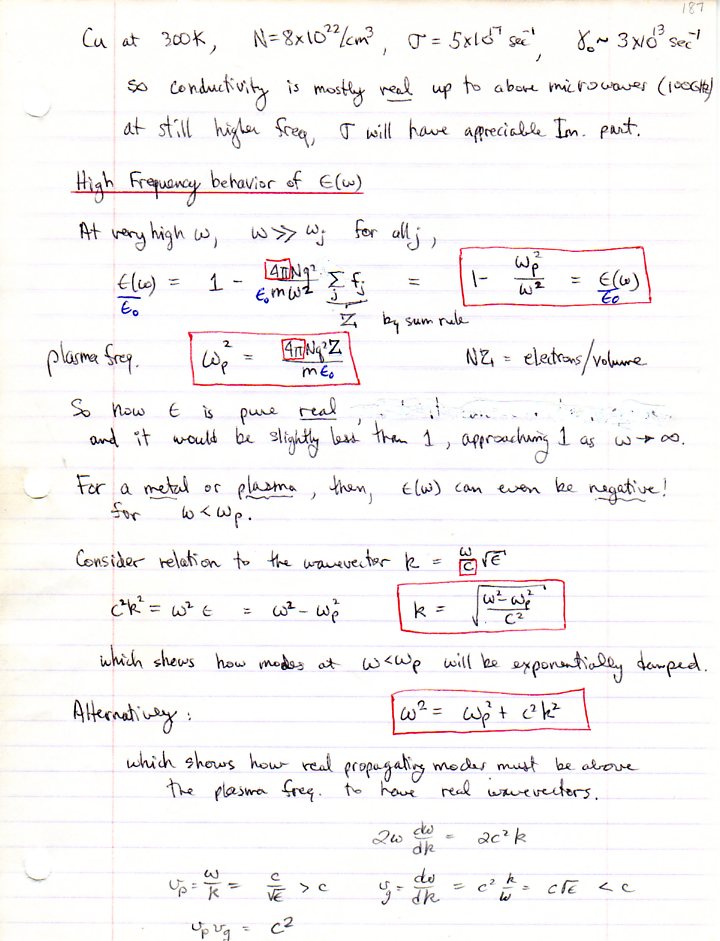 187
Cu at 300K, N=8x10²²/cm³, σ = 5x10¹⁷ sec⁻¹, γ₀ ~ 3x10¹³ sec⁻¹
so conductivity is mostly real up to above microwaves (100GHz)
at still higher freq, σ will have appreciable Im. part.
High Frequency behavior of ε(ω)
At very high ω, ω ≫ ωⱼ for all j,
ε(ω)/ε₀ = 1 - 4πNq²/ε₀mω² Σⱼ fⱼ = 1 - ωp²/ω² = ε(ω)/ε₀
Z by sum rule
plasma freq. ωp² = 4πNq²Z/mε₀ NZ = electrons/volume
So now ε is pure real,
and it would be slightly less than 1, approaching 1 as ω → ∞.
For a metal or plasma, then, ε(ω) can even be negative!
for ω < ωp.
Consider relation to the wavevector k = ω/c √ε
c²k² = ω² ε = ω² - ωp² k = √((ω² - ωp²)/c²)
which shows how modes at ω<ωp will be exponentially damped.
Alternatively: ω² = ωp² + c²k²
which shows how real propagating modes must be above
the plasma freq. to have real wavevectors.
2ω dω/dk = 2c²k
vp = ω/k = c/√ε > c vg = dω/dk = c² k/ω = c√ε < c
vp vg = c²